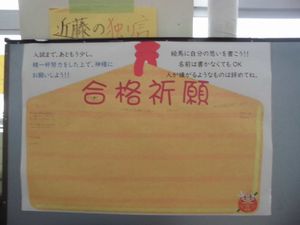 近藤の独り言
入試まで、あともう少し。
精一杯努力をした上で、神様に
お願いしよう!!
絵馬に自分の思いを書こう!!
名前は書かなくてもOK
人が嫌がるようなものは辞めてね。
合格祈願